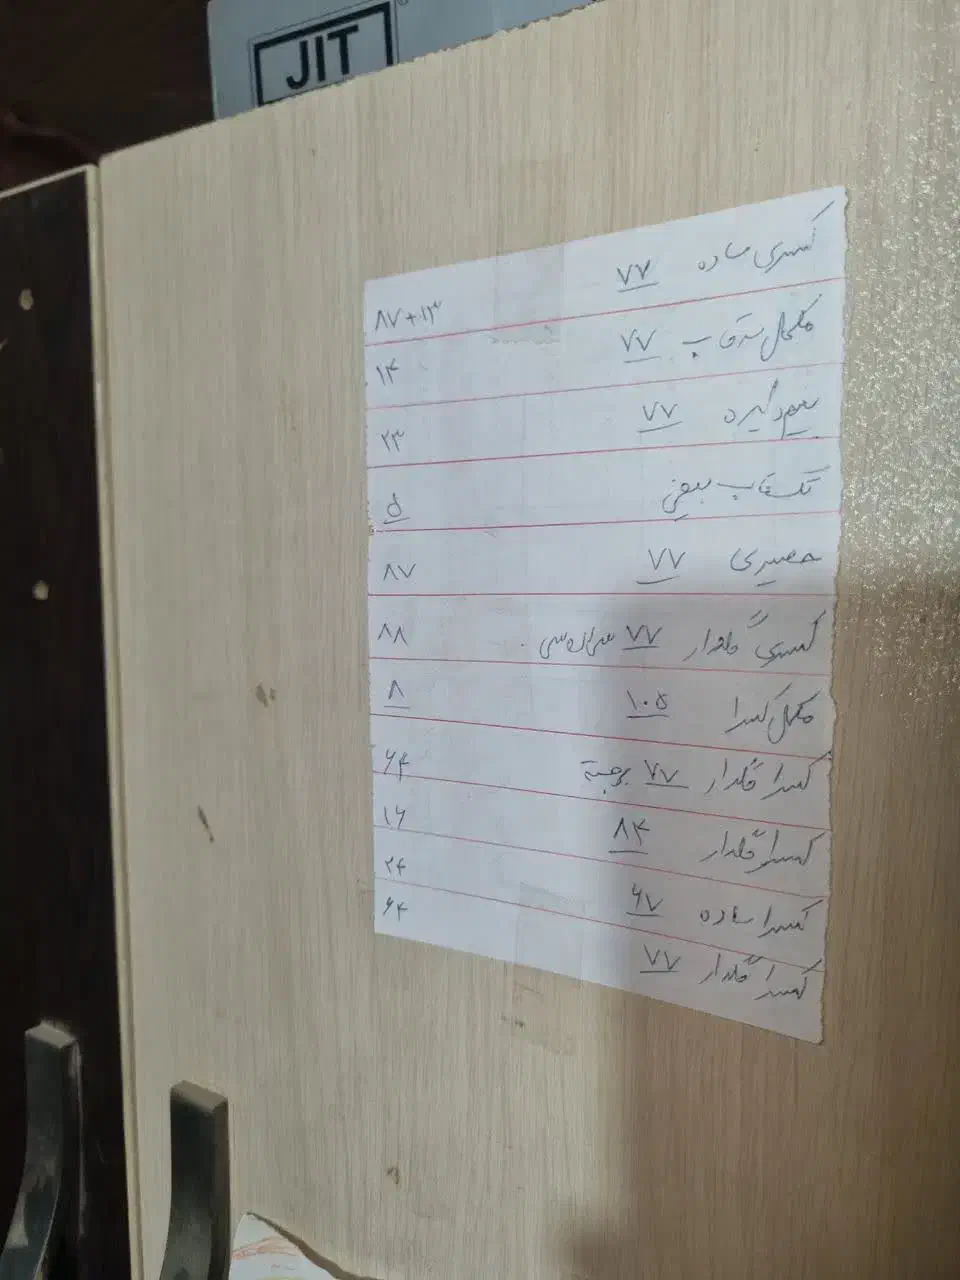 JIT
کسری ساده ۷۷ ۸۷+۱۳
مکمل بشقاب ۷۷ ۱۴
نیم دایره ۷۷ ۲۳
تک قاب بیضی ۵
حصیری ۷۷ ۸۷
کسری گلدار ۷۷ ۸۸
مکمل کسرا ۱۰۵ ۸
کسرا گلدار ۷۷ برجسته ۶۴
کسرا گلدار ۸۴ ۱۶
کسرا ساده ۶۷ ۲۴
کسرا گلدار ۷۷ ۶۴